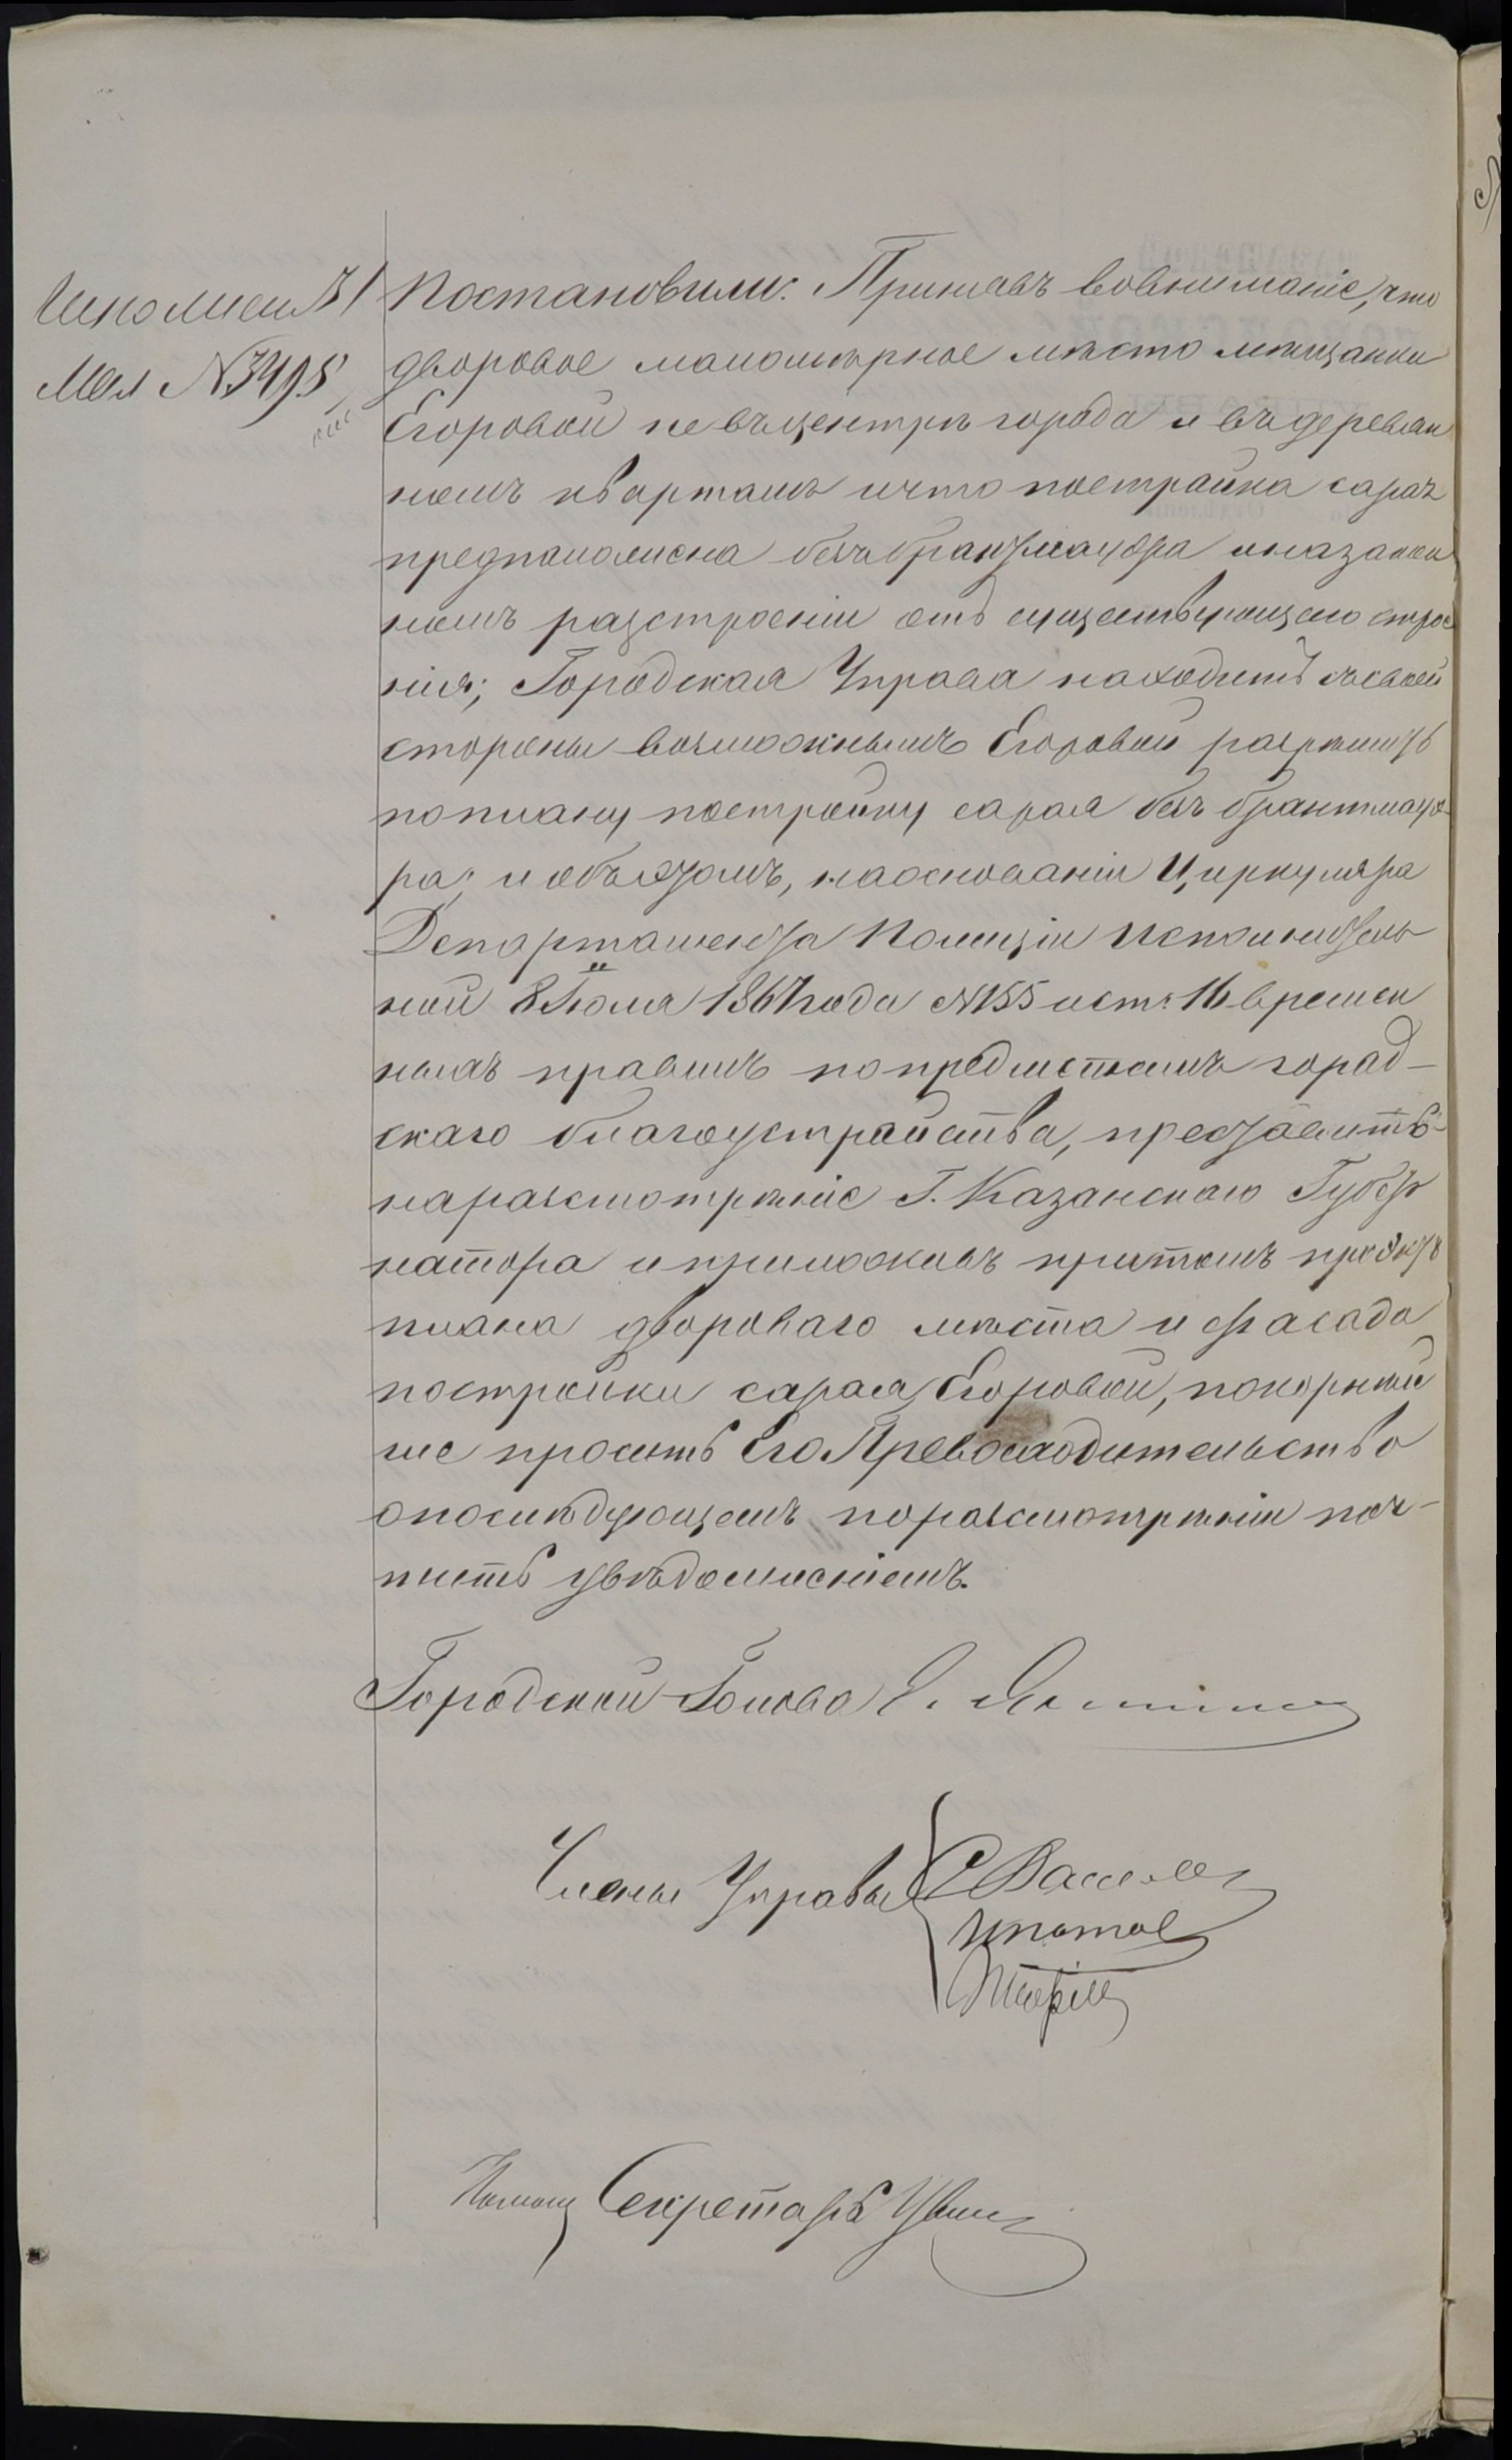 Исполнен 31
Мая № 3495
Постановили: Принявъ вовниманіе, что
дворовое маломѣрное мѣсто мѣщанки
Егоровой не въ центрѣ города и въ деревян
номъ кварталѣ и что постройка сарая
предположена безъ брантмауэра
номъ разстроеніи отъ существующаго строе
нія; Городская Управа находитъ съ своей
стороны возможнымъ Егоровой разрѣшить
поплану постройку сарая безъ брантмауе-
ра; и объ этомъ, наоснованіи Циркуляра
Департамента Полиціи Исполнитель
ной 8 Іюля 1867 года № 155 и ст. 16 времен
ныхъ правилъ попредметамъ город-
скаго благоустройства, представить
наразсмотрѣніе Г. Казанскаго Губер
натора и приложивъ притомъ проэктъ
плана двороваго мѣста и фасада
постройки сарая Егоровой, покорнѣй
ше просить Его Превосходительство
опослѣдующемъ поразсмотрѣніи поч-
тить увѣдомленіемъ.
Городской Голова
Члены Управы
Ипатов
Помощ Секретаря